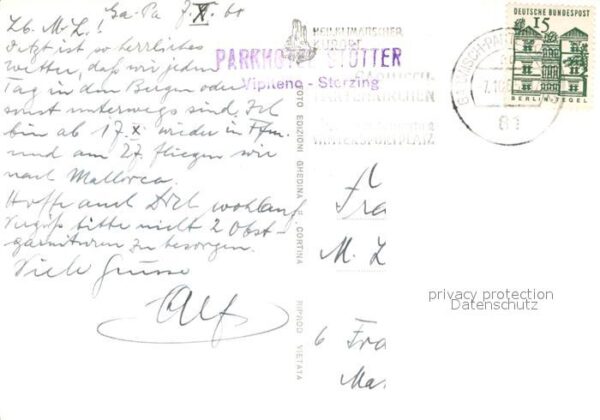 Ga-Pa 7.X.60
Lb. M. L.!
Jetzt ist so herrliches
Wetter, daß wir jeden
Tag in den Bergen oder
sonst unterwegs sind. Ich
bin ab 17.X. wieder in Ffm.
und am 27. fliegen wir
nach Mallorca.
Hoffe auch Dich wohlauf.
Vergiß bitte nicht 2 Obst-
garnituren zu besorgen.
Viele Grüsse
Alf
HEILKLIMATISCHER
KURORT
PARKHOTEL STÖTTER
Vipiteno - Sterzing
PARTENKIRCHEN
WINTERSPORTPLATZ
GARMISCH-PARTENKIRCHEN
7.10
81
DEUTSCHE BUNDESPOST
15
BERLIN-TEGEL
FOTO EDIZIONI GHEDINA F. CORTINA RIPROD. VIETATA
Fra
M. L
6 Fra
Ma
privacy protection
Datenschutz